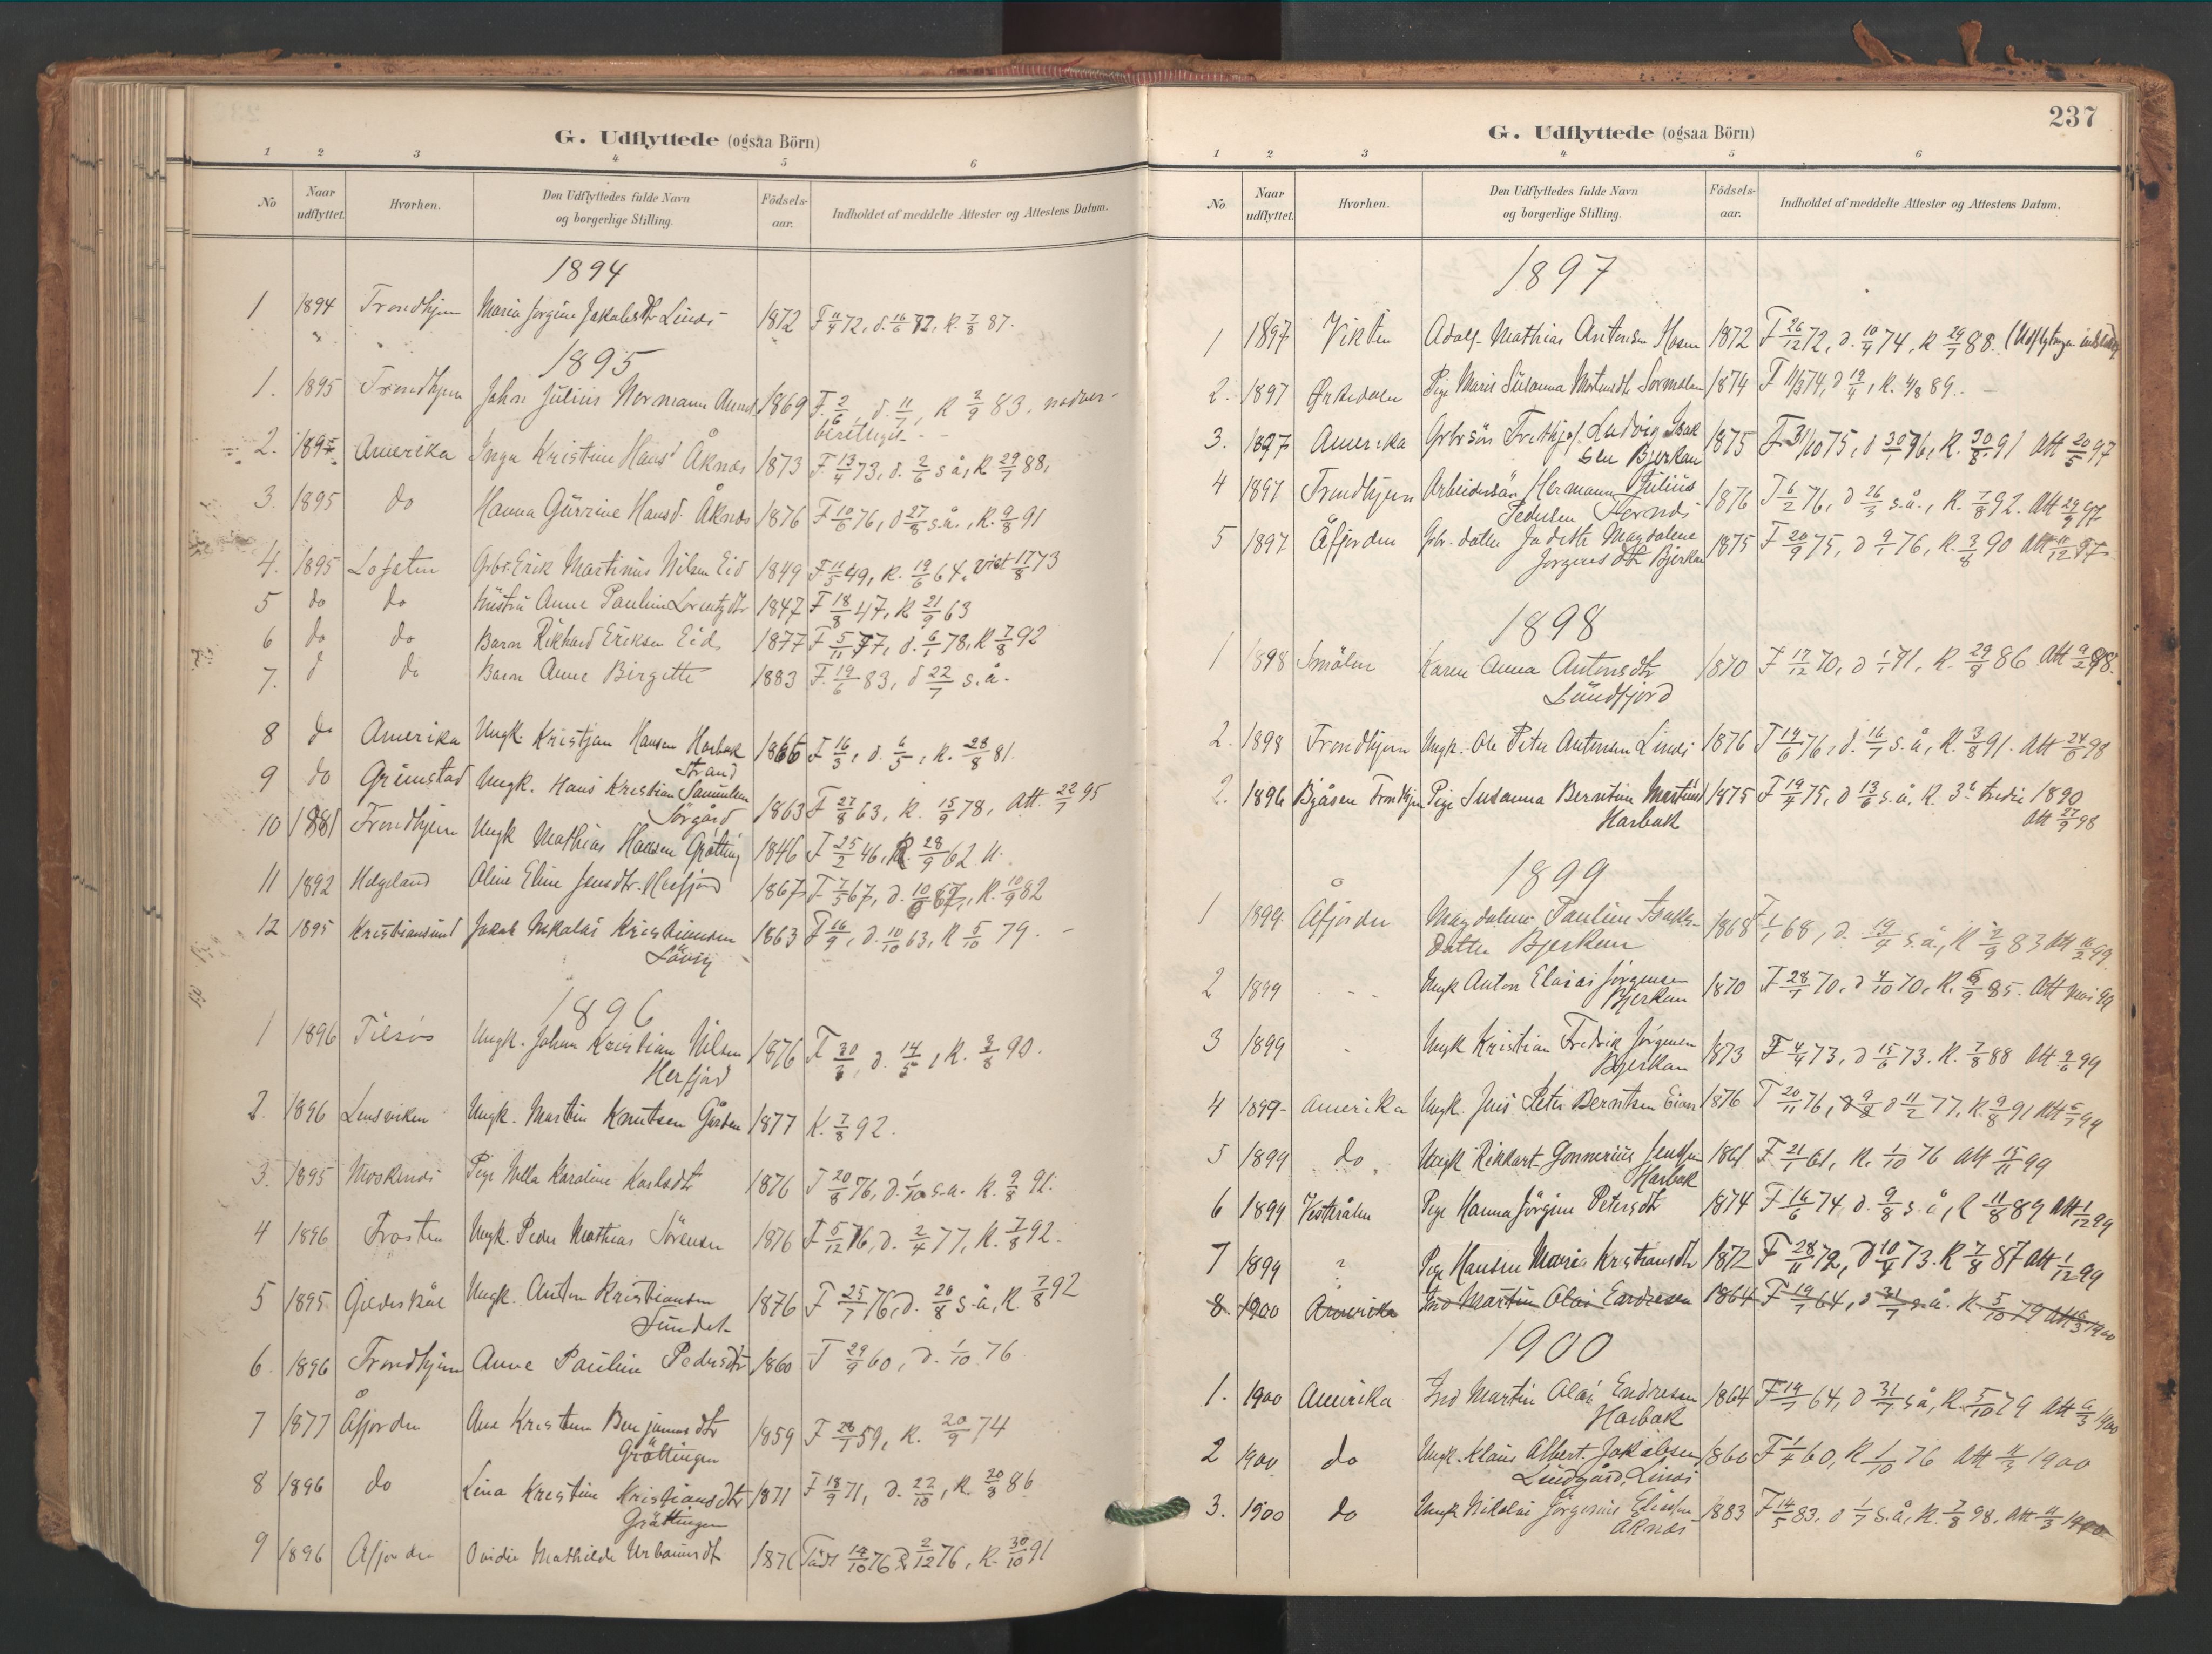 G. Udflyttede (ogsaa Börn)
1 2 3 4 5 6
No
Naar udflyttet.
Hvorhen.
Den Udflyttedes fulde Navn og borgerlige Stilling.
Födsels-aar.
Indholdet af meddelte Attester og Attestens Datum.
1894
1 1894 Trondhjem Maria Jorgine Jakobsdtr Linds 1872 F 11/4 72, d. 16/6 72, K. 7/8 87.
1895
1. 1895 Trondhjem Johan Julius Normann 1869 F. 2/6, d. 11/7, K 2/9 83,
2. 1895 Amerika Inga Kristine Hansd Åknes 1873 F. 13/4 73, d. 2/6 s å, K. 29/7 88,
3. 1895 do Hanna Gurine Hansd. Åknes 1876 F 10/6 76, d 27/8 s.å., K. 9/8 91
4. 1895 Lofoten Gbr. Erik Martinus Nilsen Eid 1849 F 11/5 49, K. 19/6 64, viet 17/8 73
5 do do Hustru Anne Pauline Lorentzdtr 1847 F 18/8 47, K 21/9 63
6 do do Barn Rikhard Eriksen Eid 1877 F 5/11 77, d. 6/1 78, K 7/8 92
7. d do Barn Anne Birgitte 1883 F. 19/6 83, d 22/7 s.å.
8 do Amerika Ungk. Kristjan Hansen Harbak 1866 F 16/3, d. 6/5, K. 28/8 81.
Strand
9 do Grimstad Ungk. Hans Kristian Samuelsen
Sörgård 1863 F 27/8 63, K. 15/9 78, Att. 22/7 95
10 1881 Trondhjem Ungk Mathias Hansen Grötting 1846 F 25/2 46, K. 28/9 62
11 1892 Helgeland Oline Eline Jensdtr. Herfjord 1867 F 7/5 67, d. 10/6 67, K. 10/9 82
12 1895 Kristiansund Jakob Nikolai Kristiansen 1863 F 16/9, d. 10/10 63, K 5/10 79.
1896
1 1896 Ungk. Johan Kristian Nilsen 1876 F 30/3, d. 14/5, K. 3/8 90.
Herfjord
2. 1896 Lensviken Ungk. Martin Knutsen Gården 1877 K. 7/8 92.
3. 1895 Moskenes Pige Nella Karoline Karlsdtr 1876 F 20/8 76, d. 1/10 s.å. K. 9/8 91.
4 1896 Frosten Ungk. Peder Mathias Sörensen 1876 F 5/12 76, d. 2/4 77, K. 7/8 92.
5 1895 Gildeskål Ungk. Anton Kristiansen 1876 F 25/7 76, d. 20/8 s.å, K 7/8 92
Sundet
6. 1896 Trondhjem Anne Pauline Pedersdtr 1860 F 29/9 60, d. 1/10 76
7 1877 Åfjorden Ane Kristine Benjaminsdtr 1859 F 28/1 59, K. 20/9 74
Gröttingen
8 1896 do Lina Kristine Kristiansdtr 1871 F 18/9 71, d. 22/10, K. 20/8 86
Gröttingen
9 1896 Åfjorden Ovidie Mathilde Urbanusdt 1876 Född 14/10 76 d 2/12 76, K. 30/10 91
237
G. Udflyttede (ogsaa Börn)
1 2 3 4 5 6
No
Naar udflyttet.
Hvorhen.
Den Udflyttedes fulde Navn og borgerlige Stilling.
Födsels-aar.
Indholdet af meddelte Attester og Attestens Datum.
1897
1 1897 Vikten Adolf Mathias Antonsen Hosen 1872 F 26/12 72, d. 10/4 74, K 29/7 88.
2. 1897 Ørkedalen Pige Maris Susanna Mortensdt 1874 F 11/3 74, d 19/4, K. 4/8 89.
3. 1897 Amerika Gbrsön Frithjof Ludvig Isak
sen Bjerkan 1875 F 31/10 75, d 30/1 96, K. 30/8 91 Att 20/5 97
4 1897 Trondhjem Arbeidersön Hermann Julius
Pedersen 1876 F 6/2 76, d 26/3 s.å., K. 7/8 92. Att 29/9 97
5 1897 Åfjorden Gbr. datter Judith Magdalene
Jorgensdtr Bjerkan 1875 F 20/9 75, d 9/1 76, K. 3/8 90 Att 11/12 97
1898
1 1898 Smölen Karen Anna Antonsdtr 1870 F 17/12 70, d 1/1 71, K. 29/8 86 Att 9/2 98.
Sundfjord
2. 1898 Trondhjem Ungk. Ole Peter Antonsen Linds 1876 F 19/6 76, d. 16/7 s.å, K. 3/8 91. Att 24/8 98
2. 1896 Bjåsen Trondhjem Pige Susanna Berntine Martinsd 1875 F 19/4 75, d 13/6 s.å. K. 3e tredie 1890
Harbak Att 27/9 98
1899
1 1899 Åfjorden Magdalene Pauline Isaks-
datter Bjerkan 1868 F 1/1 68, d. 19/4 s.å, K 2/9 83 Att 16/2 99
2 1899 Ungk Anton Elaias Jörgensen
Bjerkan 1870 F 28/7 70, d 4/10 70, K. 6/9 85. Att mai 99
3 1899 Ungk Kristian Fredrik Jörgensen
Bjerkan 1873 F 4/4 73, d 15/6 73. K. 7/8 88 Att 9/6 99
4 1899 Amerika Ungk. Jens Peter Berntsen 1876 F 20/11 76, d 11/2 77, K. 9/8 91 Att 5/7 99
5 1899 do Ungk Rikkart Gonnerius Jensen
Harbak 1861 F. 21/1 61, K. 1/10 76 Att 15/11 99
6 1899 Vesterålen Pige Hanna Jörgine Petersdt 1874 F 16/6 74, d. 9/8 s.å, K 11/8 89 Att 1/12 99
7 1899 ? Pige Hansine Maria Kristiansdtr 1872 F 28/11 72, d 10/4 73. K 7/8 87 Att 1/12 99
8. 1900 Amerika Ind Martin Olai Endresen 1864 F 19/7 64, d 31/7 s.å. K. 5/10 79 Att 6/3 1900
1900
1. 1900 Amerika Ind Martin Olai Endresen
Harbak 1864 F 19/7 64, d 31/7 s å, K. 5/10 79 Att 6/3 1900
2 1900 do Ungk. Klaus Albert Jakobsen
Lindgård, Linds 1860 F 1/4 60, K 1/10 76 Att 11/3 1900
3. 1900 do Ungk Nikolai Jörgenius
Åknes 1883 F 14/5 83, d 1/7 s.å, K. 7/8 98, Att 11/3 1900